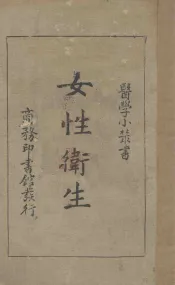 醫學小叢書
女性衛生
商務印書館發行